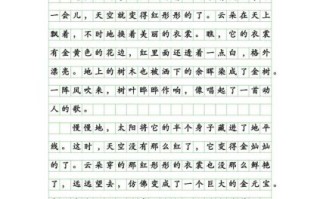 一会儿，天空就变得红彤彤的了。云朵在天上
飘着，不时地换着美丽的衣裳。瞧，它的衣裳
有金黄色的花边，红里面还透着一点白，格外
漂亮。地上的树木也被洒下的余晖染成了金树。
一阵风吹来，树叶哗哗作响，像唱起了一首动
人的歌。
慢慢地，太阳将它的半个身子藏进了地平
线。这时，天空没有那么红了，它变得金灿灿
的了。云朵穿的那红彤彤的衣裳也没那么鲜艳
了，远远望去，仿佛变成了一个巨大的金元宝。